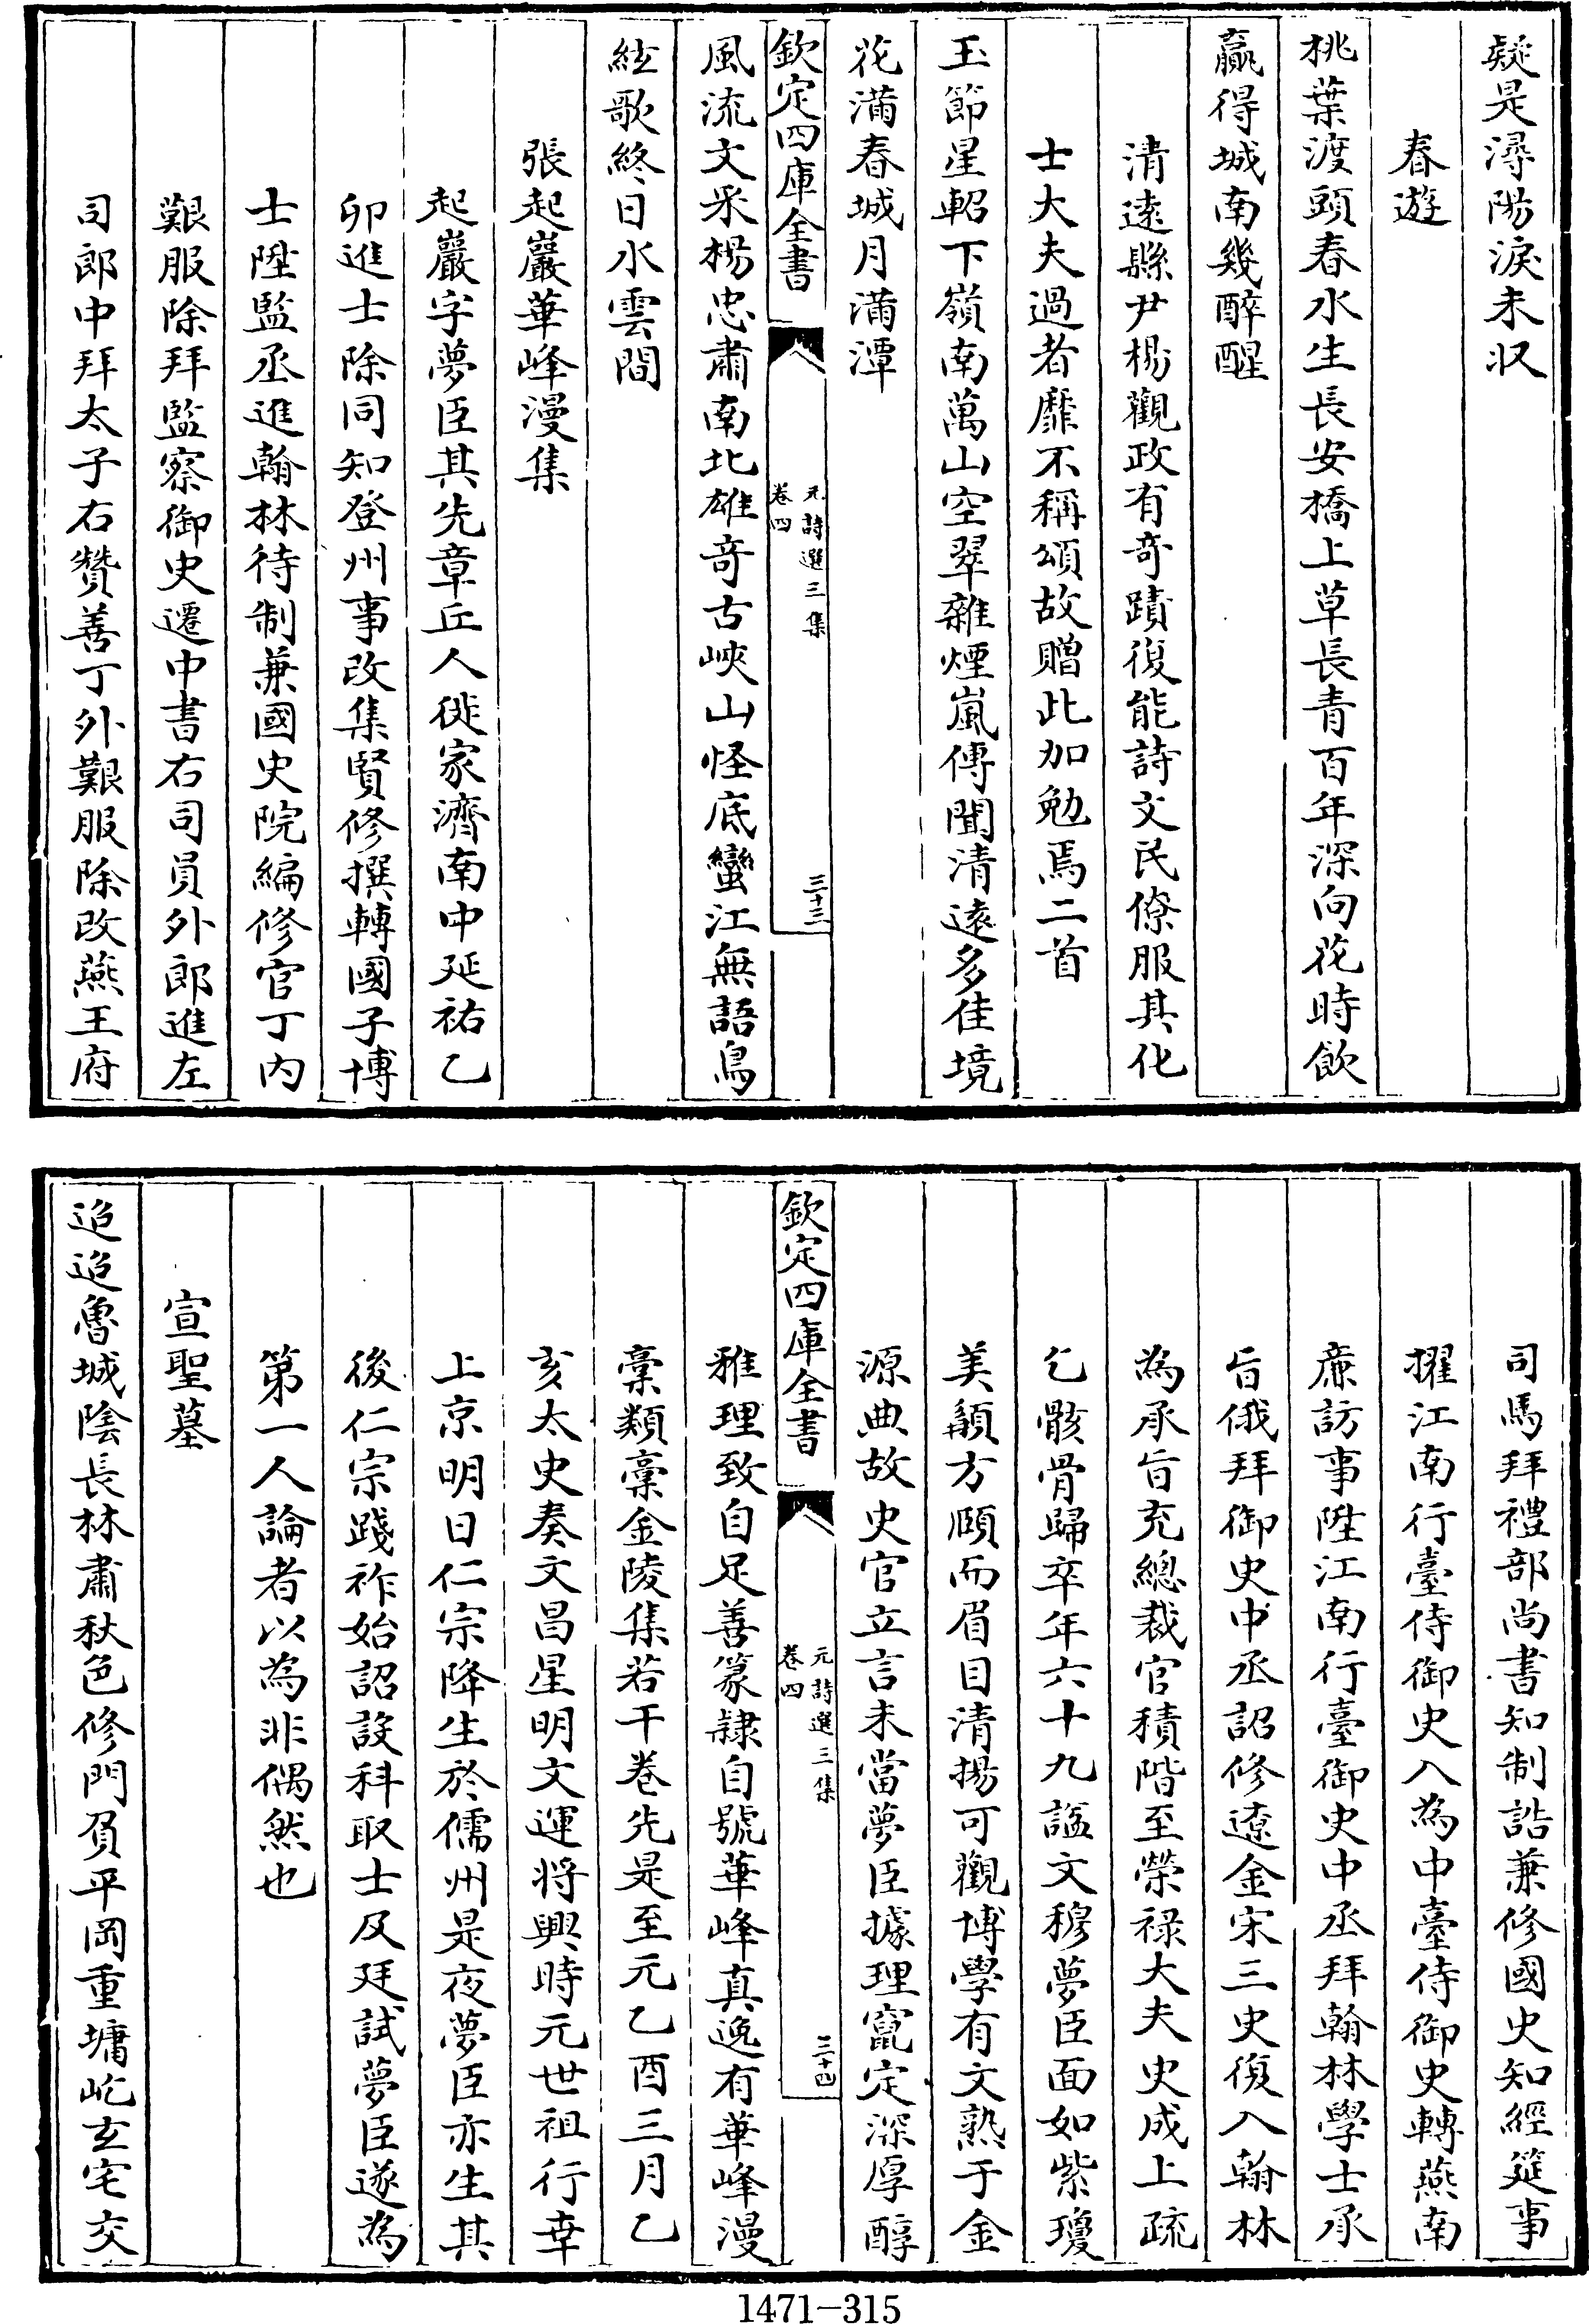 疑是潯陽淚未收
春遊
桃葉渡頭春水生長安橋上草長青百年深向花時飲
贏得城南幾醉醒
清遠縣尹楊觀政有奇蹟復能詩文民僚服其化
士大夫過者靡不稱頌故贈此加勉焉二首
玉節星軺下嶺南萬山空翠雜煙嵐傳聞清遠多佳境
花滿春城月滿潭
欽定四庫全書
元詩選三集
卷四
三十三
風流文采楊忠肅南北雄奇古峽山怪底蠻江無語鳥
絃歌終日水雲間
張起巖華峰漫集
起巖字夢臣其先章丘人徙家濟南中延祐乙
卯進士除同知登州事改集賢修撰轉國子博
士陞監丞進翰林待制兼國史院編修官丁內
艱服除拜監察御史遷中書右司員外郎進左
司郎中拜太子右贊善丁外艱服除改燕王府
司馬拜禮部尚書知制誥兼修國史知經筵事
擢江南行臺侍御史入為中臺侍御史轉燕南
廉訪事陞江南行臺御史中丞拜翰林學士承
旨俄拜御史中丞詔修遼金宋三史復入翰林
為承旨充總裁官積階至榮祿大夫史成上疏
乞骸骨歸卒年六十九諡文穆夢臣面如紫瓊
美顓方頤而眉目清揚可觀博學有文熟于金
源典故史官立言未當夢臣據理竄定深厚醇
欽定四庫全書
元詩選三集
卷四
三十四
雅理致自足善篆隸自號華峰真逸有華峰漫
稾類稾金陵集若干卷先是至元乙酉三月乙
亥太史奏文昌星明文運將興時元世祖行幸
上京明日仁宗降生於儒州是夜夢臣亦生其
後仁宗踐祚始詔設科取士及廷試夢臣遂為
第一人論者以為非偶然也
宣聖墓
迢迢魯城陰長林肅秋色修門負平岡重墉屹玄宅交
1471-315